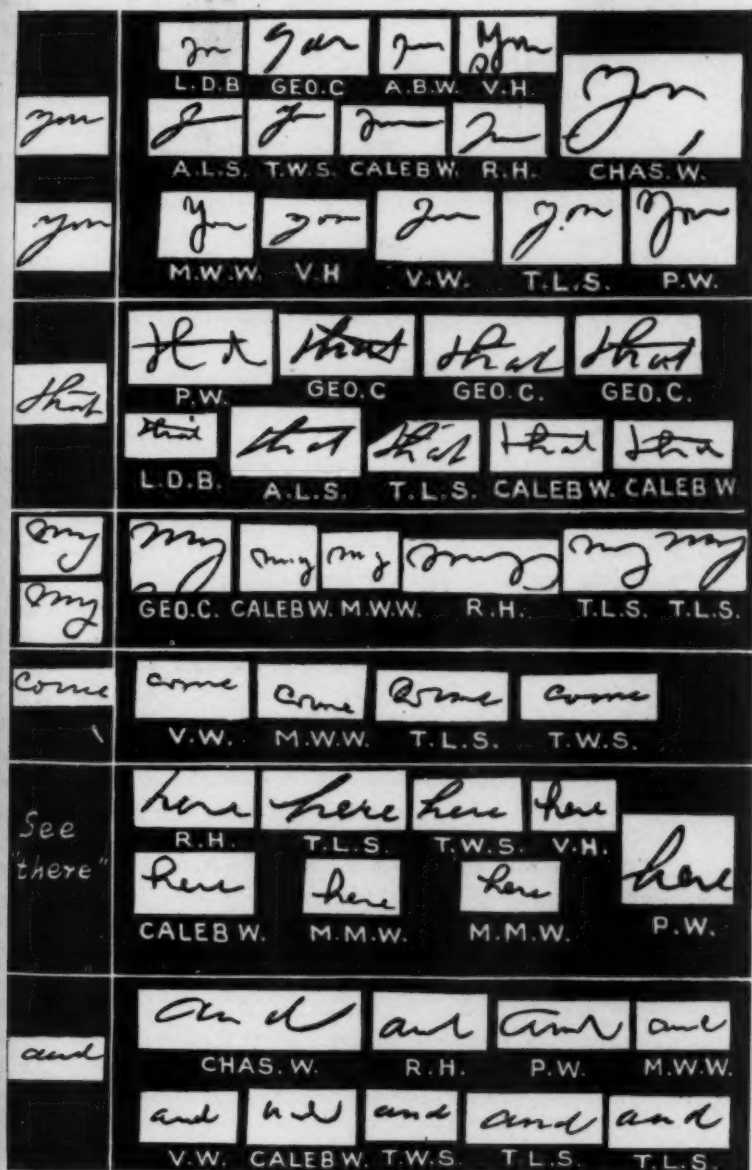 you you you you
L.D.B GEO.C A.B.W. V.H.
you you you you you you
A.L.S. T.W.S. CALEB W. R.H. CHAS. W.
you you you you you you
M.W.W. V.H V.W. T.L.S. P.W.
that that that that
P.W. GEO.C GEO.C. GEO.C.
that that that that that that
L.D.B. A.L.S. T.L.S. CALEB W. CALEB W
my my my my my my my
my
GEO.C. CALEB W. M.W.W. R.H. T.L.S. T.L.S.
come come come come come
V.W. M.W.W. T.L.S. T.W.S.
here here here here
See R.H. T.L.S. T.W.S. V.H.
"there" here here here here
CALEB W. M.M.W. M.M.W. P.W.
and and and and
CHAS. W. R.H. P.W. M.W.W.
and
and and and and and
V.W. CALEB W. T.W.S. T.L.S. T.L.S.